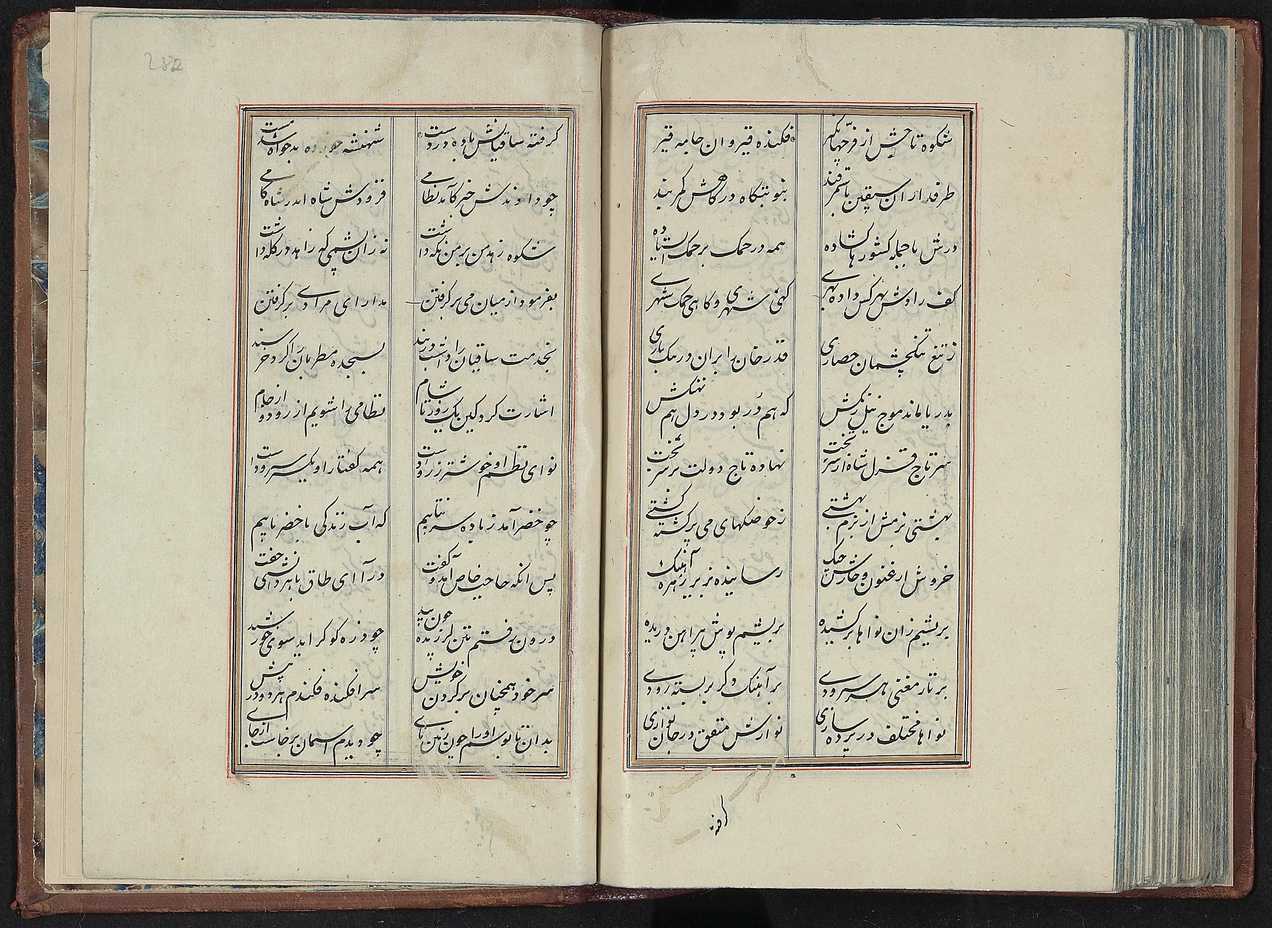 شکوه تاجش از فرّ جهانگیر فکنده قیروان جامه قیر
طرفداران سقسین تا سمرقند بنوبتگاه درگاهش کمر بند
درش با جمله کشورها کشاده همه در حمک بر حمک استاده
کف رادش بهر کس داده بهری کهی شهری و کاهی حمک شهری
ز تیغ تنکچشمان حصاری قدر خان را بران در تنک باری
بدریا ماند موج نیل رنکش که هم دُر بود در دل هم نهنکش
سر تاج قزل شاه از سر تخت نهاده تاج دولت بر سر تخت
بهشتی بزمش از بزم بهشتی ز حوضکهای می پر کشته کشتی
خروش ارغنون و خارش جنک رسانیده بزیر زهره آهنک
بریشم زان نواها برکشیده بریشم پوش پیراهن دریده
بر تار مغنی هر سرودی بر آهنک دکر بربسته رودی
نواها مختلف در پرده سازی نوازش متفق در جان نوازی
کرفته ساقیانش باده در دست شهنشه خورده بدخواه شد مست
چو دادندش خبر کآمد نظامی فزودش شاه اندر شاه کامی
شکوه زهد من بر من نکه داشت نه زان پشمی که زاهد در کله داشت
بفرمود از میان می برکرفتن مدارای مرا پی برکرفتن
بخدمت ساقیان را داشت در بند بسجده مطربان را کرد خرسند
اشارت کرد کین یک روز تا شام نظامی را شویم از رود و از جام
نوای نظم او خوشتر ز رودست همه کفتار او یکسر سرودست
چو خضر آمد ز باده سر بتابیم که آب زندکی با خضر یابیم
پس انکه حاجب خاص آمد و کفت در آ ای طاق با هر دانشی جفت
درون رفتم تن لرزیده چون بید چو ذره کو کراید سوی خورشید
سر خود همچنان بر کردن خویش سر افکنده فکندم هر دو در پیش
بدان تا بوسم او را چون زمین پای چو دیدم اسمان برخاست از جای